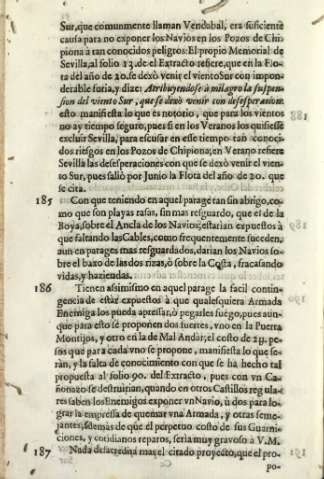 Sur, que comunmente llaman Vendobal, era suficiente
causa para no exponer los Navios en los Pozos de Chi-
piona à tan conocidos peligros: El propio Memorial de
Sevilla, al folio 13. de el Extracto refiere, que en la Flo-
ta del año de 20. se dexò venir el viento Sur con impon-
derable furia, y dize: Atribuyendose à milagro la suspen-
sion del viento Sur, que se dexò venir con desesperacion:
esto manifiesta lo que es notorio, que para los vientos
no ay tiempo seguro, pues si en los Veranos los quisiesse
excluir Sevilla, para escusar en esse tiempo tan conoci-
dos riesgos en los Pozos de Chipiona; en Verano refiere
Sevilla las desesperaciones con que se dexò venir el vien-
to Sur, pues saliò por Junio la Flota del año de 20. que
se cita.
185 Con que teniendo en aquel parage tan sin abrigo, co-
mo que son playas rasas, sin mas resguardo, que el de la
Boya, sobre el Ancla de los Navios; estarian expuestos à
que faltando las Cables, como frequentemente suceden,
aun en parages mas resguardados, darian los Navios so-
bre el baxo de las dos rizas, ò sobre la Costa, fracasando
vidas, y haziendas.
186 Tienen assimismo en aquel parage la facil contin-
gencia de estar expuestos à que qualesquiera Armada
Enemiga los pueda apresar, ò pegarles fuego, pues aun-
que para esto se proponen dos fuertes, vno en la Puerta
Montijos, y otro en la de Mal Andar; el costo de 19. pe-
sos que para cada vno se propone, manifiesta lo que se-
ràn, y la falta de conocimiento con que se ha hecho tal
propuesta al folio 90. del Extracto, pues con vn Ca-
ñonazo se destruirian, quando en otros Castillos regula-
res saben los Enemigos exponer vn Navio, ù dos para lo-
grar la empressa de quemar vna Armada, y otras seme-
jantes; además de què el perpetuo costo de sus Guarni-
ciones, y cotidianos reparos, seria muy gravoso à V.M.
187 Nada desacredita mas el citado proyecto, que el pro-
Cc
po-